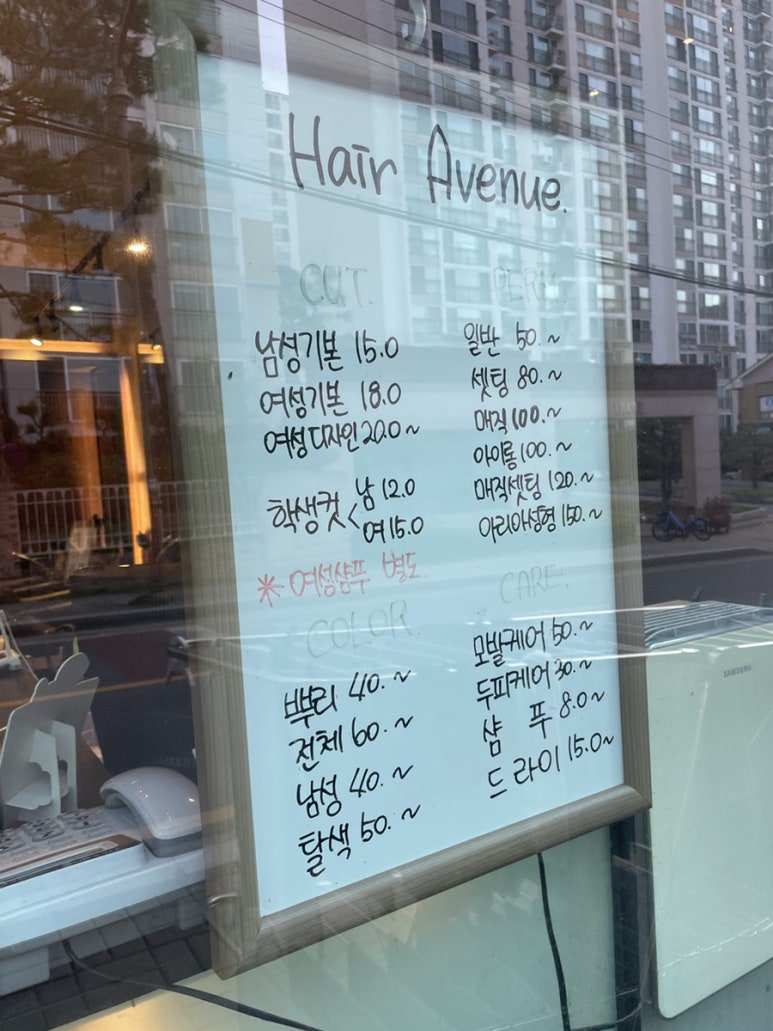 Hair Avenue.
CUT.
남성기본 15.0
여성기본 18.0
여성디자인 20.0~
학생컷 < 남 12.0
여 15.0
* 여성샴푸 별도.
COLOR.
뿌리 40.~
전체 60.~
남성 40.~
탈색 50.~
PERM.
일반 50.~
셋팅 80.~
매직 100.~
아이롱 100.~
매직셋팅 120.~
아리아성형 150.~
CARE.
모발케어 50.~
두피케어 30.~
샴 푸 8.0~
드라이 15.0~
SAMSUNG